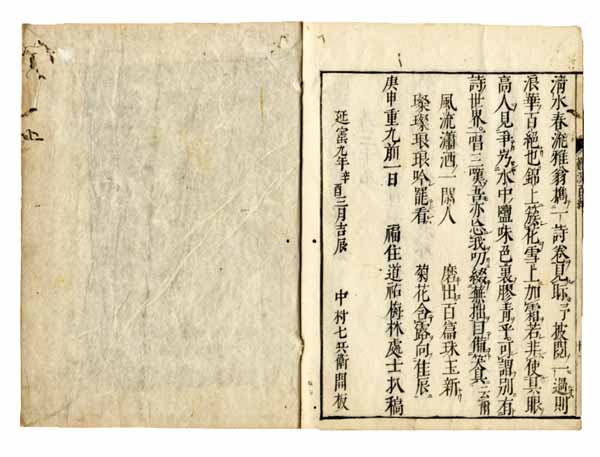 清水春流雅翁携一詩卷見眎予披閲一過則
浪華百絶也錦上簇花雪上加霜若非使具眼
高人見爭水中鹽味色裏膠青乎可謂別有
詩世界一唱三嘆吾亦忘我叨綴蕪拙目備笑具云爾
風流瀟洒一閑人　磨出百篇珠玉新
璨璨琅琅吟罷看　菊花含露向佳辰
庚申重九前一日　福住道祐梅林處士稿
延宝九年辛酉三月吉辰　中村七兵衛開板